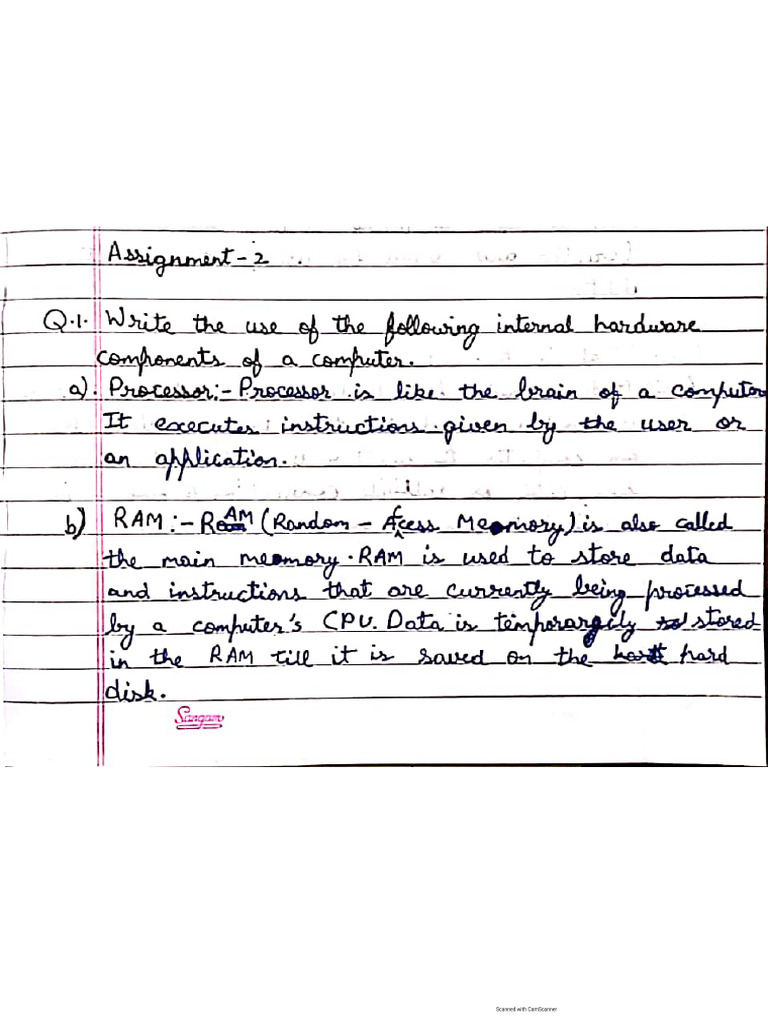 Assignment-2
Q.1. Write the use of the following internal hardware
components of a computer.
a). Processor:- Processor is like the brain of a computer
It executes instructions given by the user or
an application.
b) RAM:- RAM (Random - Access Memory) is also called
the main memory. RAM is used to store data
and instructions that are currently being processed
by a computer's CPU. Data is temporarily stored
in the RAM till it is saved on the hard
disk.
Sangam
Scanned with CamScanner